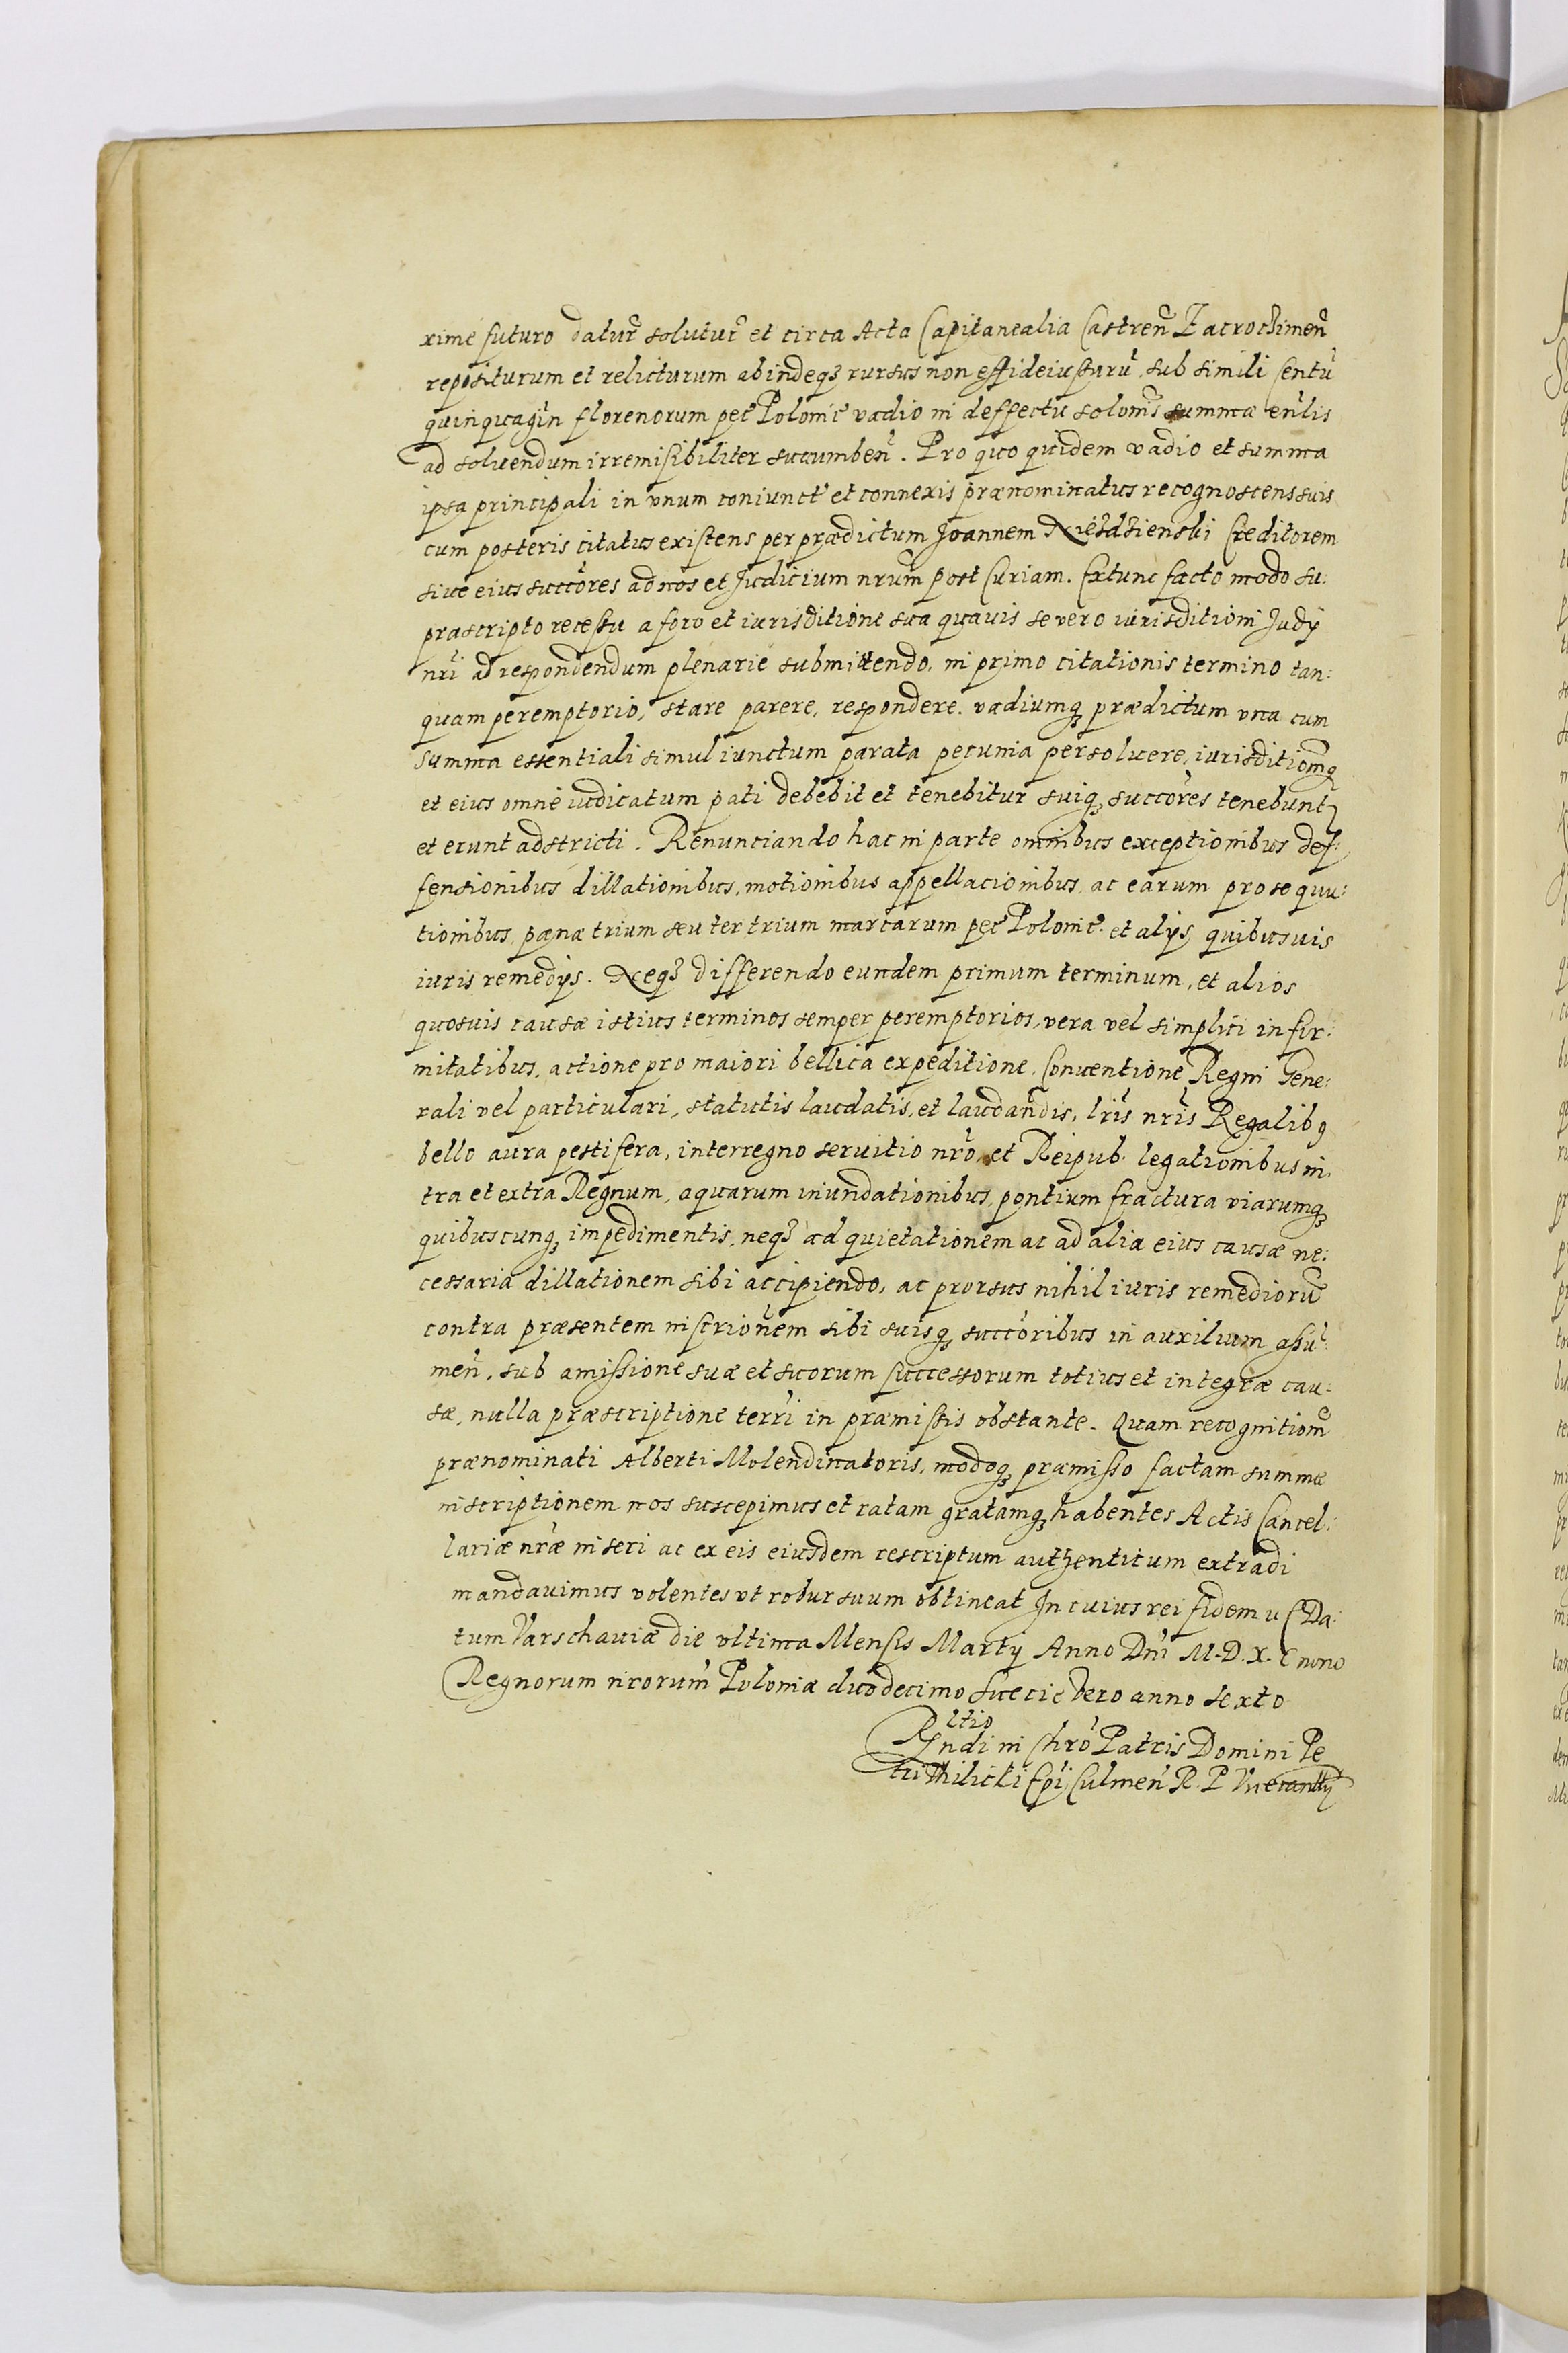 xime futuro datur̃ solutur̃ et circa Acta Capitanealia Castren̄ Zacroczimen̄
repositurum et relicturum abindeqȝ rursus non effideiussurū, sub simili centū
quinquagin̄ florenorum pec̄ Polonic̄ vadio in deffectu solonis̄ summæ en̄lis
ad soluendum irremisibiliter succumben̄. Pro quo quidem vadio et summa
ipsa principali in vnum coniunct̄ et connexis prænominatus recognoscens suis
cum posteris citatus existens per prædictum Joannem Niezdzienski Creditorem
siue eius succōres ad nos et Judicium nr̄um post Curiam. Extunc facto modo su:
præscripto recessu a foro et iurisditione sua quauis se vero iurisditioni Judÿ
nr̄i ad respondendum plenarie submittendo, in primo citationis termino tan:
quam peremptorio, stare parere, respondere. vadiumqȝ prædictum vna cum
summa essentiali simul iunctum parata pecunia persoluere, iurisditiom̄qȝ
et eius omne iudicatum pati debebit et tenebitur suiqȝ succōres tenebuntꝛ
et erunt adstricti. Renunciando hac in parte omnibus exceptionibus def:
fensionibus dillationibus, motionibus appellacionibus, ac earum prosequu:
tionibus, pænæ trium seu ter trium marcarum pec̄ Polonic̄. et alÿs quibusuis
iuris remedÿs. Neqȝ differendo eundem primum terminum, et alios
quosuis causæ istius terminos semper peremptorios, vera vel simplici infir:
mitatibus, actione pro maiori bellica expeditione, Conuentione Regni Gene:
rali vel particulari, statutis laudatis, et laudandis, lr̄is nr̄is Regalibꝯ
bello aura pestifera, interregno seruitio nr̄o, et Reipub. legationibus in:
tra et extra Regnum, aquarum inundationibus, pontium fractura viarumqȝ
quibuscunqȝ impedimentis, neqȝ ad quietationem ac ad alia eius causæ ne:
cessaria dillationem sibi accipiendo, ac prorsus nihil iuris remediorū
contra præsentem inscrionem̄ sibi suisqȝ succōribus in auxilium assū:
men̄, sub amissione suæ et suorum successorum totius et integræ cau:
sæ, nulla præscriptione terr̄i in præmissis obstante. Quam recognitiom̄
prænominati Alberti Molendinatoris, modoqȝ præmisso factam summæ
inscriptionem nos suscepimus et ratam gratamqȝ habentes Actis Cancel:
lariæ nr̄æ inseri ac ex eis eiusdem rescriptum authenticum extradi
mandauimus volentes vt robur suum obtineat In cuius rei fidem Da:
tum Varschauiæ die vltima Mensis Martÿ Anno Dn̄i M. D. X. C nono
Regnorum nr̄orum Poloniæ duodecimo Suecie vero anno sexto
Rltio
Rn̄di in Chrō Patris Domini Pe
tri Thilicki Ep̄i Culmen̄ R. P.